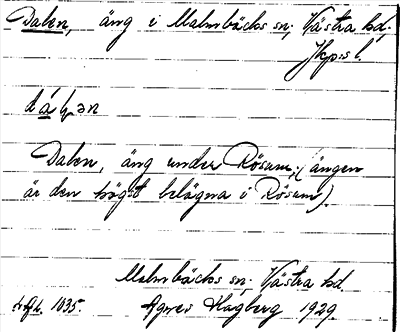 Dalen, äng i Malmbäcks sn; Västra hd;
Jkp:s l.
dáḷ>ən
Dalen, äng under Rösum; (ängen
är den högst belägna i Rösum).
Malmbäcks sn; Västra hd
1035. Agnes Hagberg 1929